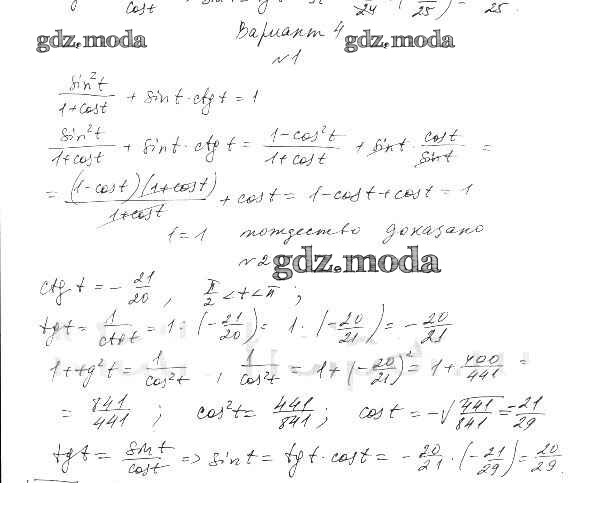 cost 24 25) = 25.
Вариант 4
gdz.moda gdz.moda
№1
sin²t/(1+cost) + sint·ctgt = 1
sin²t/(1+cost) + sint·ctgt = (1-cos²t)/(1+cost) + sint·cost/sint =
= (1-cost)(1+cost)/(1+cost) + cost = 1-cost+cost = 1
1=1 тождество доказано
№2 gdz.moda
ctgt = -21/20, π/2<t<π;
tgt = 1/ctgt = 1:(-21/20) = 1·(-20/21) = -20/21
1+tg²t = 1/cos²t, 1/cos²t = 1+(-20/21)² = 1+400/441 =
= 841/441; cos²t = 441/841; cost = -√(441/841) = -21/29
tgt = sint/cost => sint = tgt·cost = -20/21·(-21/29) = 20/29.